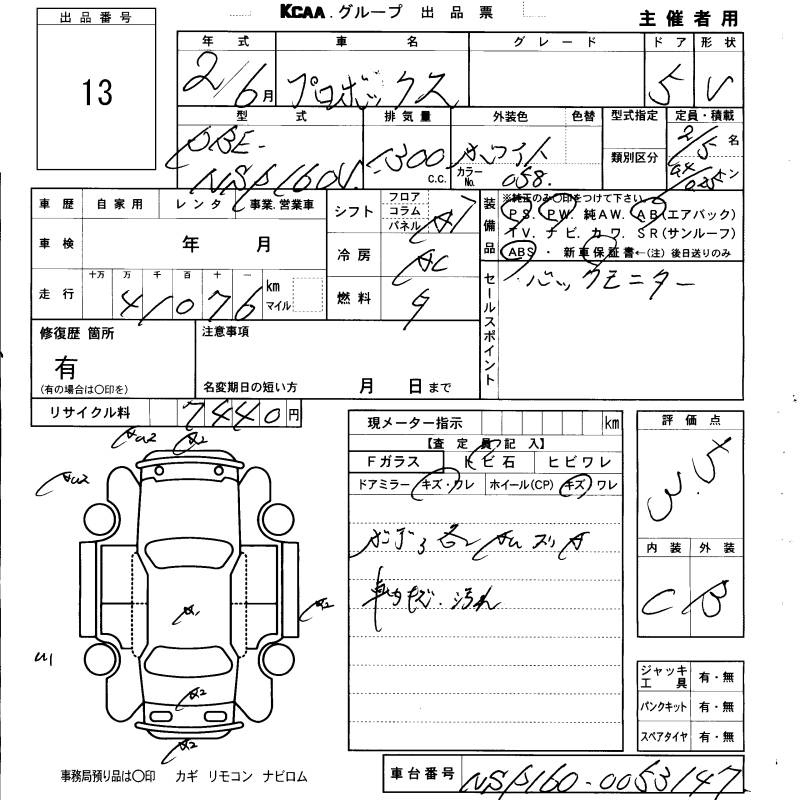 出品番号
KCAA.グループ 出品票
主催者用
13
年式 車名 グレード ドア 形状
2/6月 プロボックス 5 V
型式 排気量 外装色 色替 型式指定 定員・積載
DBE-
NSP160V 1300 c.c. ホワイト
カラーNo. 058. 類別区分 2/5名
0.4/0.25トン
車歴 自家用 レンタ 事業.営業車
シフト フロア コラム パネル AT
装備品 ※純正のみ〇印をつけて下さい
PS. PW. 純AW. AB(エアバック)
TV. ナビ. カワ. SR(サンルーフ)
ABS ・ 新車保証書←(注)後日送りのみ
車検 年 月
冷房 AC
走行 十万 万 千 百 十 一
41076 km マイル
燃料 ガ
セールスポイント バックモニター
修復歴 箇所
有
(有の場合は〇印を)
注意事項
名変期日の短い方 月 日まで
リサイクル料 7440円
現メーター指示 km
【査定員記入】
Fガラス トビ石 ヒビワレ
ドアミラー キズ・ワレ ホイール(CP) キズ ワレ
評価点
3.5
内装 外装
C B
AU2 A2
AU2
A1
A2
U1
A2
A2
車内キズ.汚れ
ジャッキ工具 有・無
パンクキット 有・無
スペアタイヤ 有・無
事務局預り品は〇印 カギ リモコン ナビロム
車台番号 NSP160-0053147